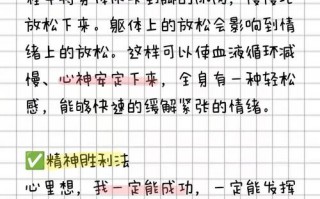 放松下来。躯体上的放松会影响到情
绪上的放松。这样可以使血液循环减
慢、心神安定下来，全身有一种轻松
感，能够快速的缓解紧张的情绪。
✅精神胜利法
心里想，我一定能成功，一定能发挥